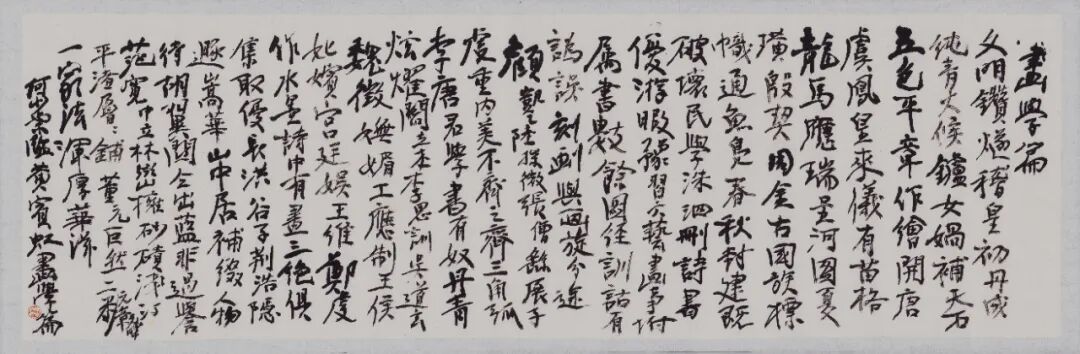 畫學篇
文明鑽燧稽皇初丹成
純青火候鑪女媧補天石
五色平章作繪開唐
虞鳳皇來儀有苗格
龍馬應瑞呈河圖夏
璜殷契周金古國族標
幟通魚鳧春秋封建既
破壞民學洙泗刪詩書
優游暇豫習六藝畫事附
屬書數餘圖徑訓詁有
訛誤刻劃與畫旋分途
顧愷之陸探微張僧繇展子
虔重內美不齊之齊三角弧
李唐君學書有奴丹青
炫耀閻立本李思訓吳道玄
魏徵嫵媚工應制王侯
妃嬪容足娛王維鄭虔
作水墨詩中有畫三絕俱
集取優長洪谷子荊浩隱
遯嵩華山中居補綴人物
待胡翼關仝出藍非過譽
范寬中立林巒擁砂磧
平渣層層鋪董元巨然
一家法渾厚華滋
黃賓虹畫學篇